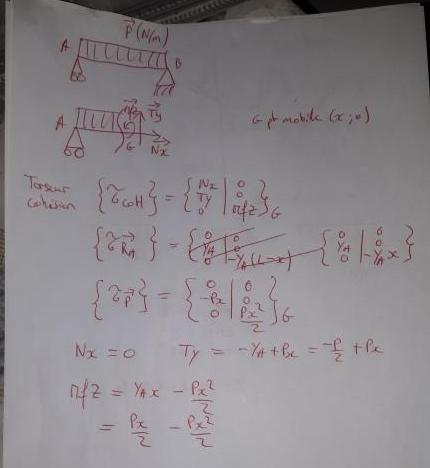 P (N/m)
A B
A Mfz Ty
G Nx
G pt mobile (x ; 0)
Torseur cohésion { τ COH } = { Nx | 0 Ty | 0 0 | Mfz } G
{ τ RA } = { 0 | 0 YA | 0 0 | -YA (L-x) } { 0 | 0 YA | 0 0 | -YA x }
{ τ P } = { 0 0 -Px 0 0 Px²/2 } G
Nx = 0 Ty = -YA + Px = -P/2 + Px
Mfz = YA x - Px²/2
= Px/2 - Px²/2